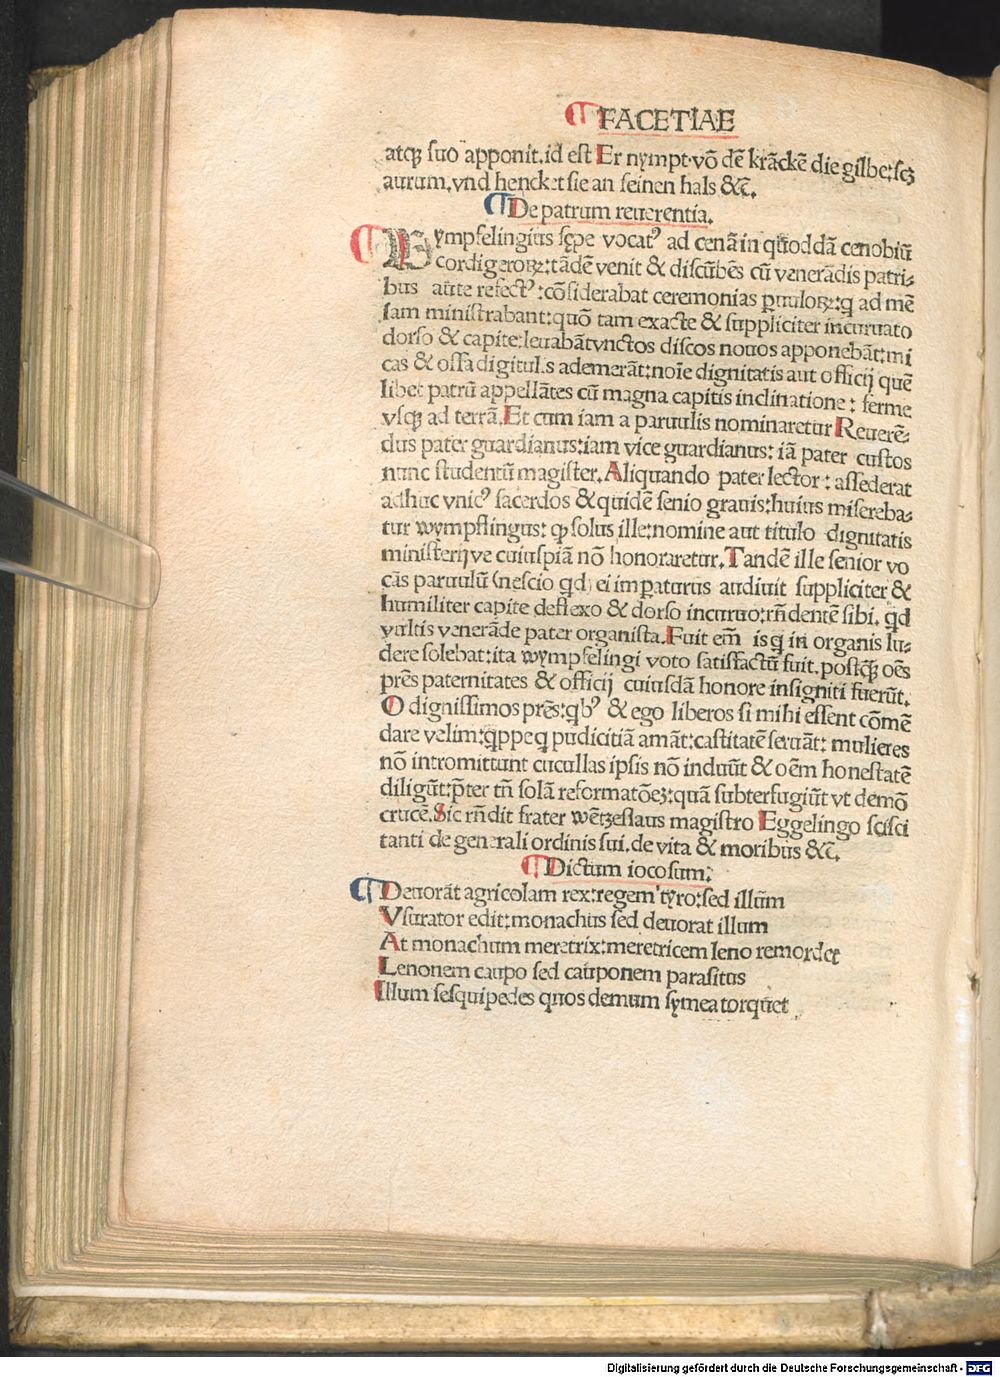 FACETIAE
atqȝ suo apponit. id est Er nympt. võ dẽ krãckẽ die gilbe: scȝ
aurum. vnd hencket sie an seinen hals &c̃.
De patrum reuerentia.
Wympfelingius sępe vocat⁹ ad cenã in quoddã cenobiũ
cordigeroꝝ: tãdẽ venit & discũbẽs cũ venerãdis patri⸗
bus aũte refect⁹: cõsiderabat ceremonias ꝑuuloꝝ: q̃ ad mẽ
sam ministrabant: quõ tam exacte & suppliciter incuruato
dorso & capite: leuabãt vnctos discos nouos apponebãt: mi
cas & ossa digitulis ademerãt: noĩe dignitatis aut officij quẽ
libet patrũ appellãtes cũ magna capitis inclinatione: ferme
vsqȝ ad terrã. Et cum iam a paruulis nominaretur Reuerẽ⸗
dus pater guardianus: iam vice guardianus: iã pater custos
nunc studentũ magister. Aliquando pater lector: assederat
adhuc vnic⁹ sacerdos & quidẽ senio grauis: huius misereba⸗
tur wympflingus: ꝙ solus ille: nomine aut titulo dignitatis
ministerijve cuiuspiã nõ honoraretur. Tandẽ ille senior vo
cãs paruulũ (nescio qd) ei imꝑaturus audiuit suppliciter &
humiliter capite deflexo & dorso incuruo: rñdentẽ sibi. qd
vultis venerãde pater organista. Fuit em̃ is q in organis lu⸗
dere solebat: ita wympfelingi voto satisfactũ fuit. postq̃ȝ oẽs
prẽs paternitates & officij cuiusdã honore insigniti fuerũt.
O dignissimos prẽs: qb⁹ & ego liberos si mihi essent cõmẽ
dare velim: qppe q pudicitiã amãt: castitatẽ seruãt: mulieres
nõ intromittunt cucullas ipsis nõ induũt & oẽm honestatẽ
diligũt: p̃ter tñ solã reformatõeȝ: quã subterfugiũt vt demõ
crucẽ. Sic rñdit frater wẽtzeslaus magistro Eggelingo scisci
tanti de generali ordinis sui. de vita & moribus &c̃.
Dictum iocosum:
Deuorãt agricolam rex: regem tyro: sed illũm
Vsurator edit: monachus sed deuorat illum
At monachum meretrix: meretricem leno remordet
Lenonem caupo sed cauponem parasitus
Illum sesquipedes quos demum symea torquet
Digitalisierung gefördert durch die Deutsche Forschungsgemeinschaft - DFG